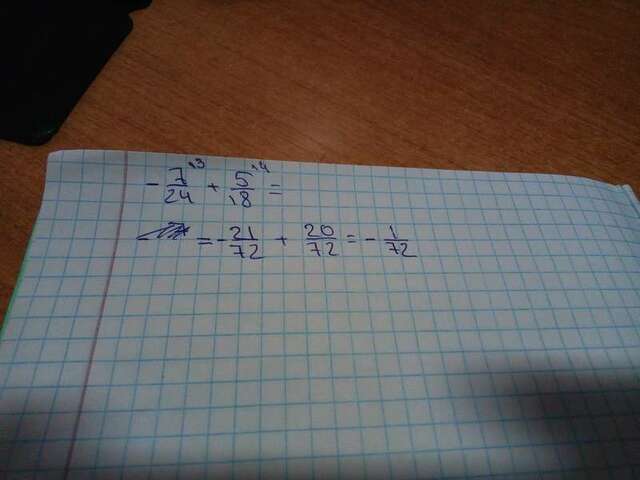 - 7/24 ·3 + 5/18 ·4 =
= - 21/72 + 20/72 = - 1/72